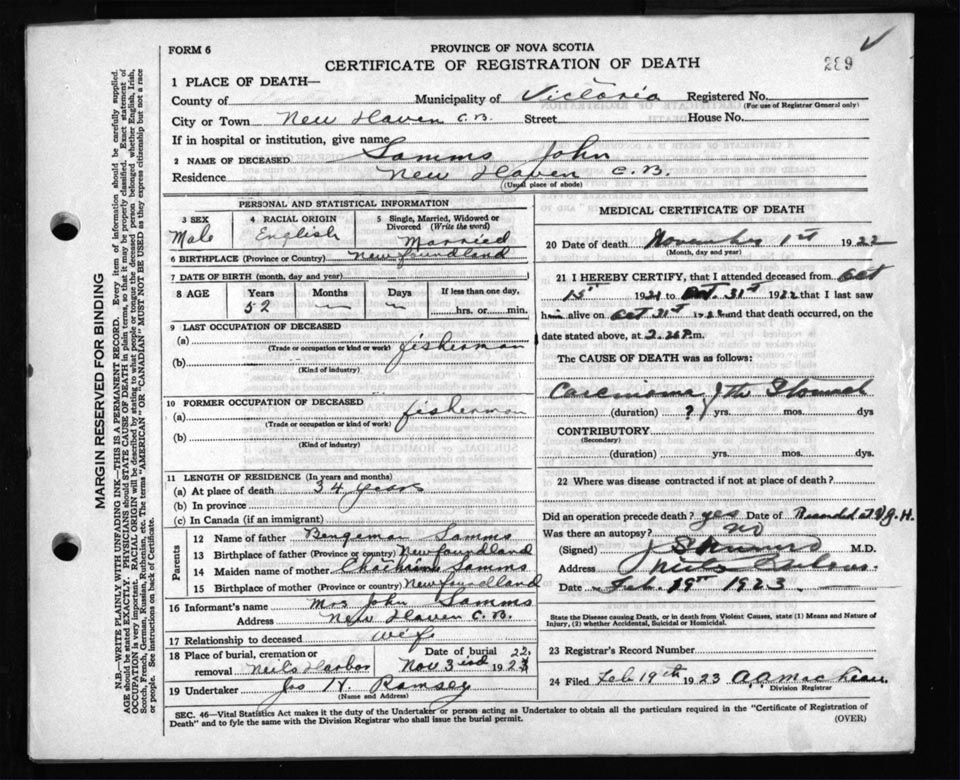 FORM 6
PROVINCE OF NOVA SCOTIA
CERTIFICATE OF REGISTRATION OF DEATH
289
1 PLACE OF DEATH—
County of Municipality of Victoria Registered No.
(For use of Registrar General only)
City or Town New Haven C.B. Street House No.
If in hospital or institution, give name
2 NAME OF DECEASED Samms John
Residence New Haven C.B.
(Usual place of abode)
PERSONAL AND STATISTICAL INFORMATION
3 SEX Male
4 RACIAL ORIGIN English
5 Single, Married, Widowed or Divorced (Write the word) Married
6 BIRTHPLACE (Province or Country) Newfoundland
7 DATE OF BIRTH (month, day and year)
8 AGE Years Months Days If less than one day,
52 — — hrs. or min.
9 LAST OCCUPATION OF DECEASED
(a) fisherman
(Trade or occupation or kind or work)
(b)
(Kind of industry)
10 FORMER OCCUPATION OF DECEASED
(a) fisherman
(Trade or occupation or kind or work)
(b)
(Kind of industry)
11 LENGTH OF RESIDENCE (In years and months)
(a) At place of death 34 years
(b) In province
(c) In Canada (if an immigrant)
Parents
12 Name of father Bengeman Samms
13 Birthplace of father (Province or country) Newfoundland
14 Maiden name of mother Samms
15 Birthplace of mother (Province or country) Newfoundland
16 Informant's name Mrs John Samms
Address New Haven C.B.
17 Relationship to deceased wife
18 Place of burial, cremation or removal Neils Harbor
Date of burial Nov 3rd 1922
19 Undertaker Jos H. Ramsey
(Name and Address)
MEDICAL CERTIFICATE OF DEATH
20 Date of death November 1st 1922
(Month, day and year)
21 I HEREBY CERTIFY, that I attended deceased from Oct
15th 1921 to Oct. 31st 1922 that I last saw
him alive on Oct 31st 1922 and that death occurred, on
date stated above, at m.
The CAUSE OF DEATH was as follows:
Carcinoma of the Stomach
(duration) ? yrs. mos. dys
CONTRIBUTORY
(Secondary)
(duration) yrs. mos. dys.
22 Where was disease contracted if not at place of death?
Did an operation precede death? yes Date of
Was there an autopsy? no
(Signed) M.D.
Address Neils
Date Feb. 19th 1923
State the Disease causing Death, or in death from Violent Causes, state (1) Means and Nature of
Injury, (2) whether Accidental, Suicidal or Homicidal.
23 Registrar's Record Number
24 Filed Feb 19th 1923 A.A. MacLean
Division Registrar
SEC. 46—Vital Statistics Act makes it the duty of the Undertaker or person acting as Undertaker to obtain all the particulars required in the "Certificate of Registration of
Death" and to fyle the same with the Division Registrar who shall issue the burial permit.
(OVER)
MARGIN RESERVED FOR BINDING
N.B.—WRITE PLAINLY WITH UNFADING INK—THIS IS A PERMANENT RECORD. Every item of information should be carefully supplied.
AGE should be stated EXACTLY. PHYSICIANS should STATE CAUSE OF DEATH in plain terms, so that it may be properly classified. Exact statement of
OCCUPATION is very important. RACIAL ORIGIN will be described by stating to what people or tongue the deceased person belonged whether English, Irish,
Scotch, French, German, Russian, Ruthenian, etc. The terms "AMERICAN" OR "CANADIAN" MUST NOT BE USED as they express citizenship but not a race
or people. See instructions on back of Certificate.